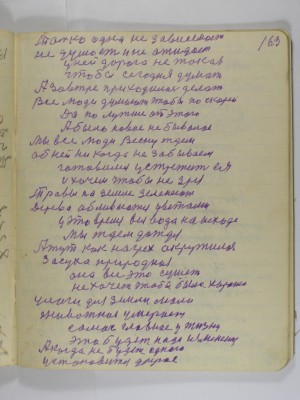 163
Только одна не зависимость
не думает и не ожидает
чтобы сегодня думать
А завтра приходим делать
Все люди думают чтобы по скорей
Да по лутше от этого
А было новое не бывалое
Мы все люди Весну ждем
об ней ни когда не забываем
готовимся устретит ея
и хочем чтобы не зря
Травы на земле зеленеют
Дерева обливаются цветами
у это время вся вода на исходе
Мы ждем дождя
А тут как на грех
Засуха природная
она все это сушит
не хочет чтоб было хорошо
для земли
животная умирает
самое главное у жизни
Это будет надо изменения
А когда не будет одного
установится другое